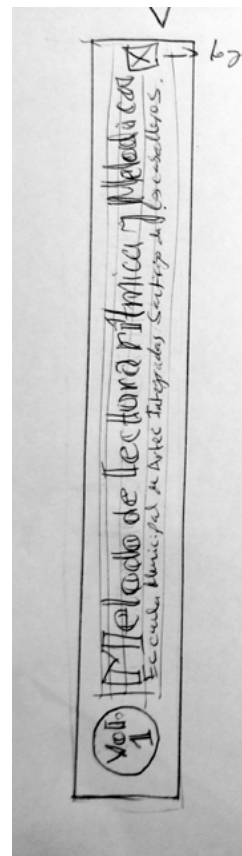 Vol. 1
Metodo de lectura rítmica y Melodica
Escuela Municipal de Artes Integradas Santiago de